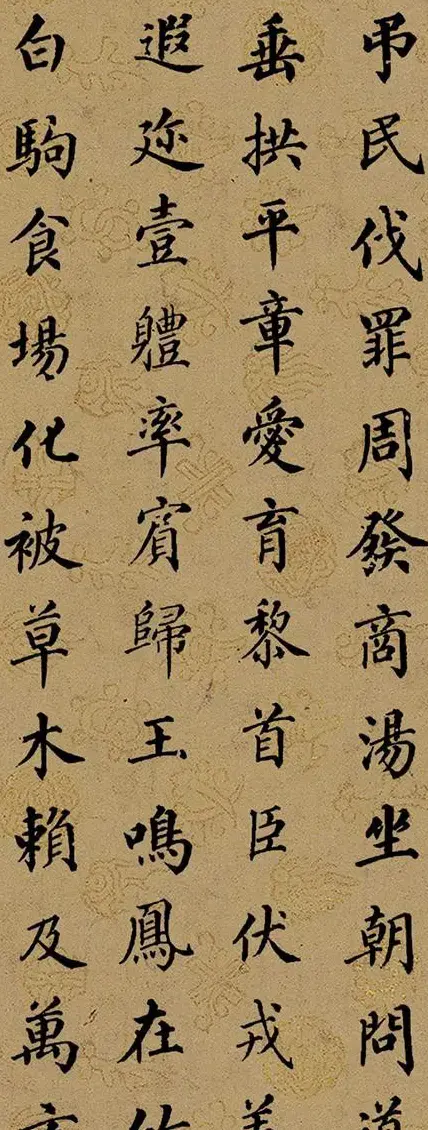 吊民伐罪周發商湯坐朝問道
垂拱平章愛育黎首臣伏戎
遐迩壹軆率賓歸王鳴鳳在
白駒食場化被草木賴及萬